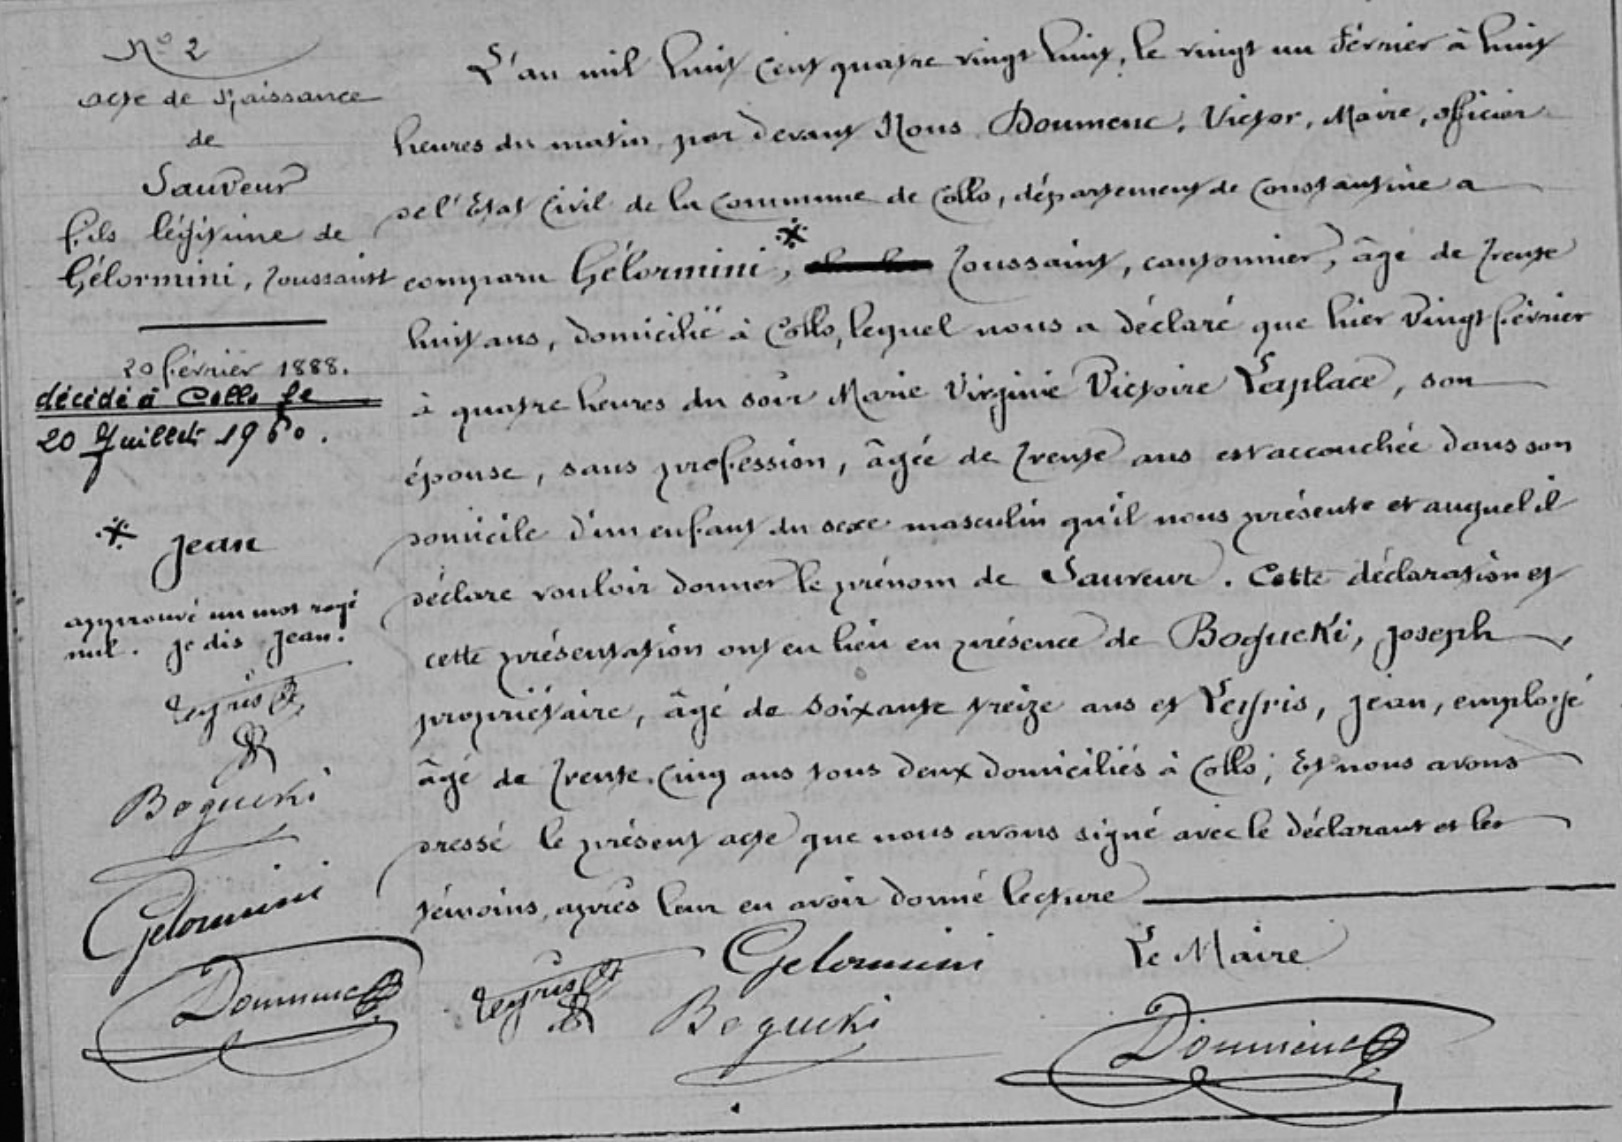 N° 2
acte de Naissance
de
Sauveur
fils légitime de
Gélormini, Toussaint
20 février 1888.
décédé à Collo le
20 Juillet 1960.
※ Jean
approuvé un mot rayé
nul. je dis Jean.
Bogucki
Gelormini
Doumenc
L'an mil huit cent quatre vingt huit, le vingt un Février à huit
heures du matin, par devant Nous Doumenc, Victor, Maire, officier
de l'Etat Civil de la Commune de Collo, département de Constantine a
comparu Gélormini, ※ Toussaint, cantonnier, âgé de trente
huit ans, domicilié à Collo, lequel nous a déclaré que hier vingt février
à quatre heures du soir Marie Virginie Victoire Laplace, son
épouse, sans profession, âgée de trente ans est accouchée dans son
domicile d'un enfant du sexe masculin qu'il nous présente et auquel il
déclare vouloir donner le prénom de Sauveur. Cette déclaration et
cette présentation ont eu lieu en présence de Bogucki, Joseph,
propriétaire, âgé de soixante treize ans et Leyris, Jean, employé
âgé de trente cinq ans tous deux domiciliés à Collo; Et nous avons
dressé le présent acte que nous avons signé avec le déclarant et les
témoins, après leur en avoir donné lecture
Gelormini
Le Maire
Bogucki
Doumenc